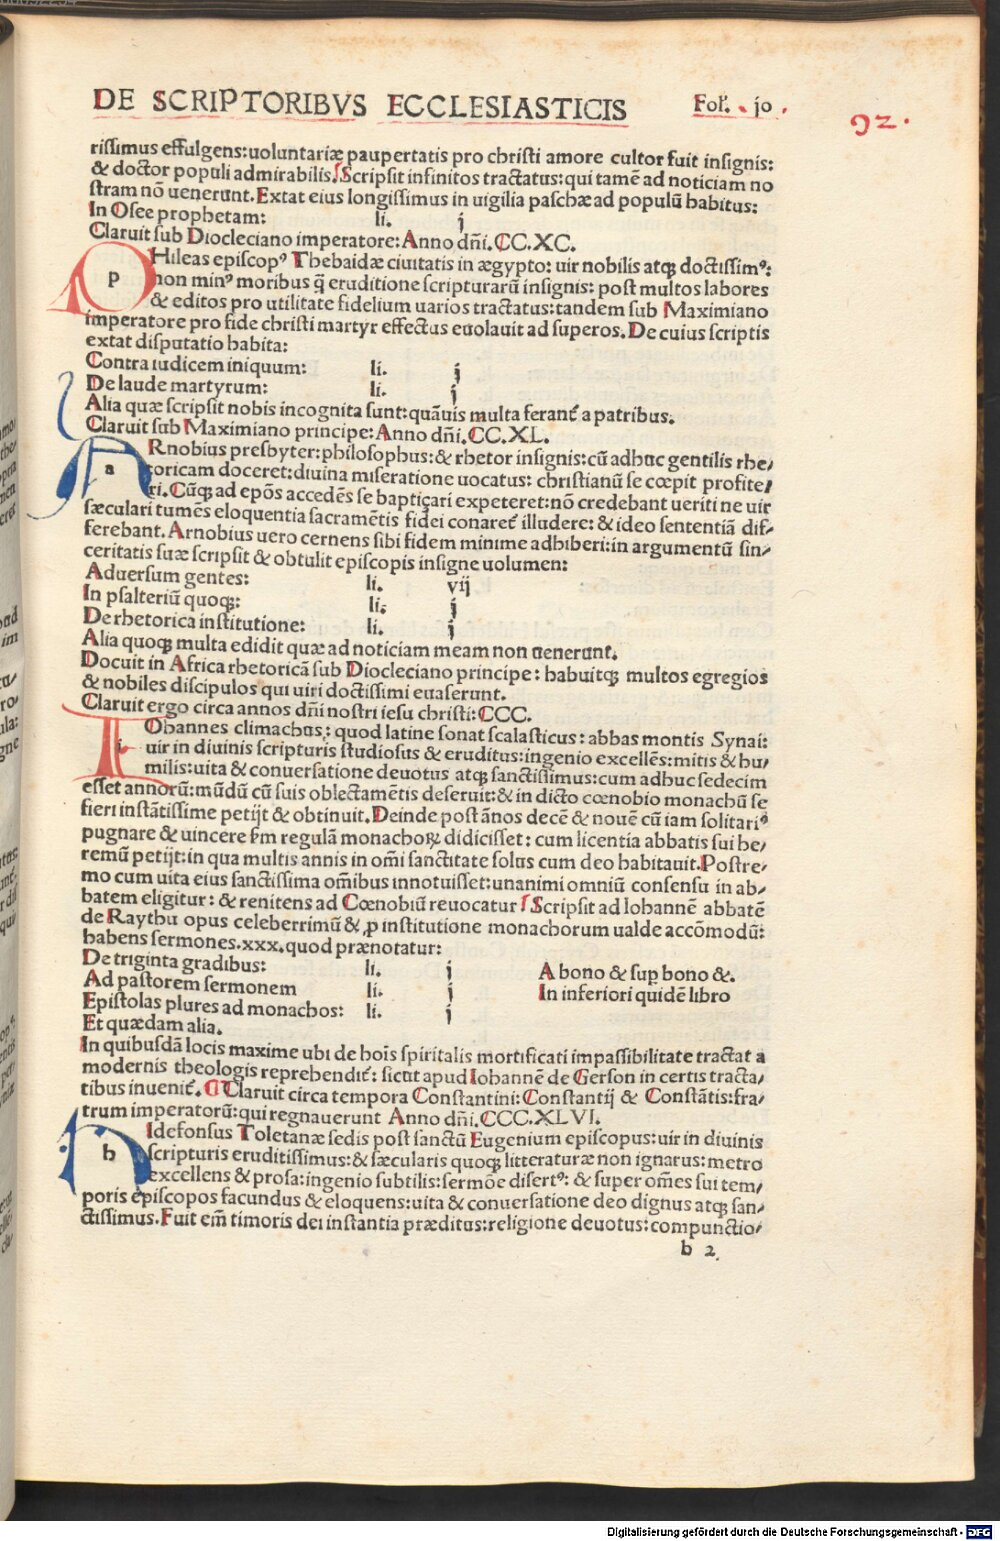 DE SCRIPTORIBVS ECCLESIASTICIS Fol. jo.
92.
rissimus effulgens: uoluntariæ paupertatis pro christi amore cultor fuit insignis:
& doctor populi admirabilis. Scripsit infinitos tractatus: qui tamē ad noticiam no
stram nō uenerunt. Extat eius longissimus in uigilia paschæ ad populū habitus:
In Osee prophetam: li. j
Claruit sub Diocleciano imperatore: Anno dn̄i. CC.XC.
p Hileas episcopꝰ Thebaidæ ciuitatis in ægypto: uir nobilis atqꝫ doctissimꝰ:
non minꝰ moribus q̄ eruditione scripturarū insignis: post multos labores
& editos pro utilitate fidelium uarios tractatus: tandem sub Maximiano
imperatore pro fide christi martyr effectus euolauit ad superos. De cuius scriptis
extat disputatio habita:
Contra iudicem iniquum: li. j
De laude martyrum: li. j
Alia quæ scripsit nobis incognita sunt: quāuis multa ferant᷑ a patribus.
Claruit sub Maximiano principe: Anno dn̄i. CC.XL.
a Rnobius presbyter: philosophus: & rhetor insignis: cū adhuc gentilis rhe-
toricam doceret: diuina miseratione uocatus: christianū se cœpit profite-
ri. Cūqꝫ ad epōs accedēs se baptiçari expeteret: nō credebant ueriti ne uir
sæculari tumēs eloquentia sacramētis fidei conaret᷑ illudere: & ideo sententiā dif-
ferebant. Arnobius uero cernens sibi fidem minime adhiberi: in argumentū sin-
ceritatis suæ scripsit & obtulit episcopis insigne uolumen:
Aduersum gentes: li. vij
In psalteriū quoqꝫ: li. j
De rhetorica institutione: li. j
Alia quoqꝫ multa edidit quæ ad noticiam meam non uenerunt.
Docuit in Africa rhetoricā sub Diocleciano principe: habuitqꝫ multos egregios
& nobiles discipulos qui uiri doctissimi euaserunt.
Claruit ergo circa annos dn̄i nostri iesu christi: CCC.
i Ohannes climachus: quod latine sonat scalasticus: abbas montis Synai:
uir in diuinis scripturis studiosus & eruditus: ingenio excellēs: mitis & hu-
milis: uita & conuersatione deuotus atqꝫ sanctissimus: cum adhuc sedecim
esset annorū: mūdū cū suis oblectamētis deseruit: & in dicto cœnobio monachū se
fieri instātissime petijt & obtinuit. Deinde post ānos decē & nouē cū iam solitariꝰ
pugnare & uincere ẜm regulā monachoꝝ didicisset: cum licentia abbatis sui he-
remū petijt: in qua multis annis in om̄i sanctitate solus cum deo habitauit. Postre-
mo cum uita eius sanctissima om̄ibus innotuisset: unanimi omniū consensu in ab-
batem eligitur: & renitens ad Cœnobiū reuocatur. Scripsit ad Iohannē abbatē
de Raythu opus celeberrimū & ꝓ institutione monachorum ualde accōmodū:
habens sermones.xxx.quod prænotatur:
De triginta gradibus: li. j A bono & suꝑ bono &.
Ad pastorem sermonem li. j In inferiori quidē libro
Epistolas plures ad monachos: li. j
Et quædam alia.
In quibusdā locis maxime ubi de hoīs spiritalis mortificati impassibilitate tractat a
modernis theologis reprehendit᷑: sicut apud Iohannē de Gerson in certis tracta-
tibus inuenit᷑. ¶ Claruit circa tempora Constantini: Constantij & Constātis: fra-
trum imperatorū: qui regnauerunt Anno dn̄i. CCC.XLVI.
h Ildefonsus Toletanæ sedis post sanctū Eugenium episcopus: uir in diuinis
scripturis eruditissimus: & sæcularis quoqꝫ litteraturæ non ignarus: metro
excellens & prosa: ingenio subtilis: sermōe disertꝰ: & super om̄es sui tem-
poris episcopos facundus & eloquens: uita & conuersatione deo dignus atqꝫ san-
ctissimus. Fuit em̄ timoris dei instantia præditus: religione deuotus: compunctio-
b 2
Digitalisierung gefördert durch die Deutsche Forschungsgemeinschaft - DFG